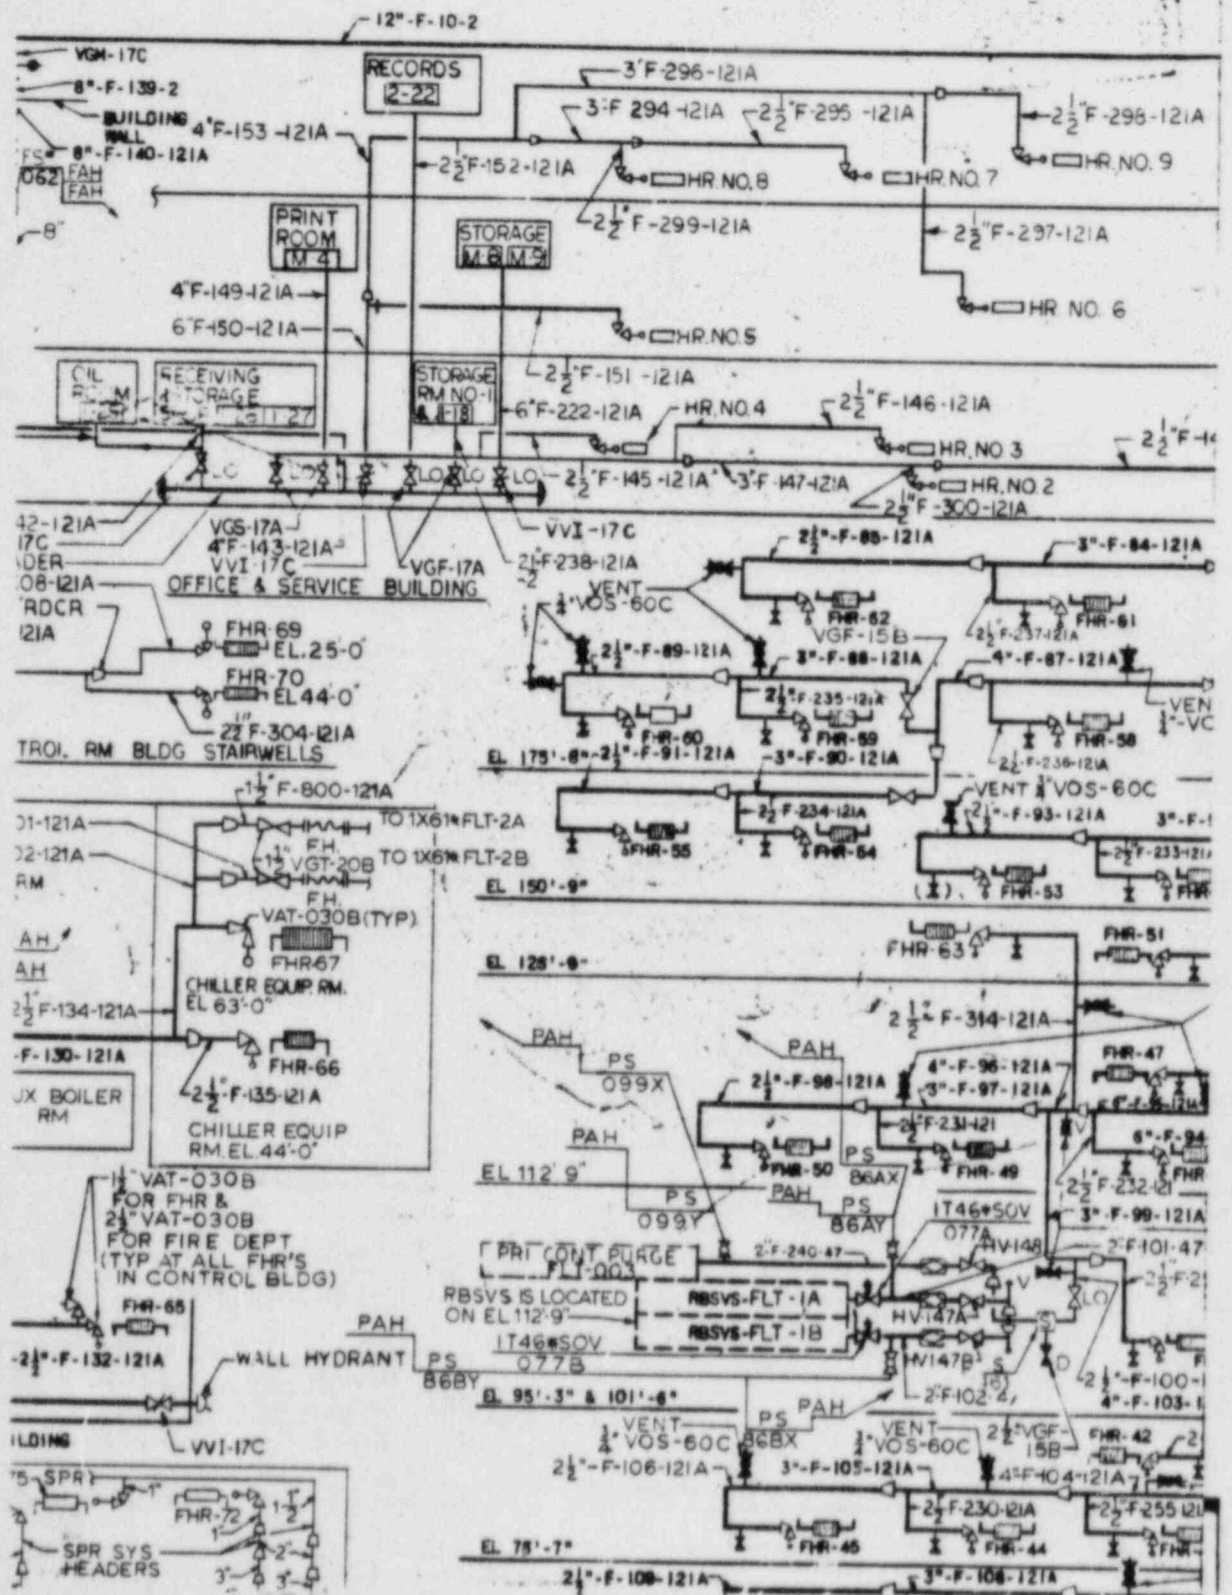 12"-F-10-2
VGM-17C
8"-F-139-2
BUILDING
WALL
8"-F-140-121A
062
FAH
FAH
8"
4"F-153-121A
RECORDS
2-22
3"F-296-121A
3"F 294-121A
2½"F-295-121A
2½"F-298-121A
2½"F-152-121A
HR.NO.8
HR.NO.7
HR.NO.9
2½"F-299-121A
2½"F-297-121A
PRINT
ROOM
M-4
STORAGE
M-8 M-9
4"F-149-121A
6"F-150-121A
HR.NO.5
HR NO. 6
RECEIVING
STORAGE
1-27
STORAGE
RM NO-1
1-18
2½"F-151-121A
6"F-222-121A
HR.NO.4
2½"F-146-121A
HR.NO 3
HR.NO.2
LO
LO
LO
LO
LO
2½"F-145-121A
3"F-147-121A
2½"F-300-121A
42-121A
17C
VGS-17A
4"F-143-121A
VVI-17C
VGF-17A
VVI-17C
2½"F-238-121A
-2
OFFICE & SERVICE BUILDING
08-121A
RDCR
121A
FHR-69
EL.25'-0"
FHR-70
EL 44'-0"
2½"F-304-121A
TROL RM BLDG STAIRWELLS
VENT
¾"VOS-60C
2½"-F-85-121A
3"-F-84-121A
FHR-62
FHR-61
VGF-15B
2½"F-237-121A
2½"-F-89-121A
3"-F-88-121A
4"-F-87-121A
2½"-F-235-121A
FHR-60
FHR-59
FHR-58
2½-F-236-121A
EL 175'-6"
2½"-F-91-121A
3"-F-90-121A
VENT ¾"VOS-60C
2½-F-234-121A
2½"-F-93-121A
2½"F-233-121A
FHR-55
FHR-54
FHR-53
EL 150'-9"
1½" F-800-121A
01-121A
02-121A
RM
TO 1X61*FLT-2A
F.H.
1½" VGT-20B
TO 1X61*FLT-2B
F.H.
VAT-030B(TYP)
FHR-67
CHILLER EQUIP. RM.
EL 63'-0"
AH
AH
2½"F-134-121A
-F-130-121A
FHR-66
2½"-F-135-121A
CHILLER EQUIP
RM. EL.44'-0"
UX BOILER
RM
FHR-63
FHR-51
EL 128'-9"
2½"-F-314-121A
FHR-47
PAH
PS
099X
PAH
2½"-F-98-121A
4"-F-96-121A
3"-F-97-121A
2½"-F-231-121
6"-F-94
FHR-50
FHR-49
PAH
PS
86AX
EL 112' 9"
PS
099Y
PAH
PS
86AY
V
2½"-F-232-121
3"-F-99-121A
1T46*SOV
077A
HV-148
2"F-101-47
PRI CONT PURGE
FLT-003
2"F-240-47
RBSVS IS LOCATED
ON EL.112'-9"
RBSVS-FLT-1A
RBSVS-FLT-1B
HV147A
HV147B
V
LO
S
D
1T46*SOV
077B
2"F-102-4
2½"-F-100-
4"-F-103-
EL 95'-3" & 101'-6"
1½" VAT-030B
FOR FHR &
2½" VAT-030B
FOR FIRE DEPT
(TYP AT ALL FHR'S
IN CONTROL BLDG)
FHR-65
-2½"-F-132-121A
WALL HYDRANT
VVI-17C
ILDING
PAH
PS
86BY
PS
86BX
PAH
VENT
¾"VOS-60C
VENT
¾"VOS-60C
2½"VGF-
15B
FHR-42
2½"-F-106-121A
3"-F-105-121A
4"F-104-121A
2½"F-230-121A
2½"F-255-121
FHR-45
FHR-44
EL 78'-7"
2½"-F-109-121A
3"-F-108-121A
SPR
FHR-72
1"
1½"
1"
2"
3"
3"
SPR SYS
HEADERS